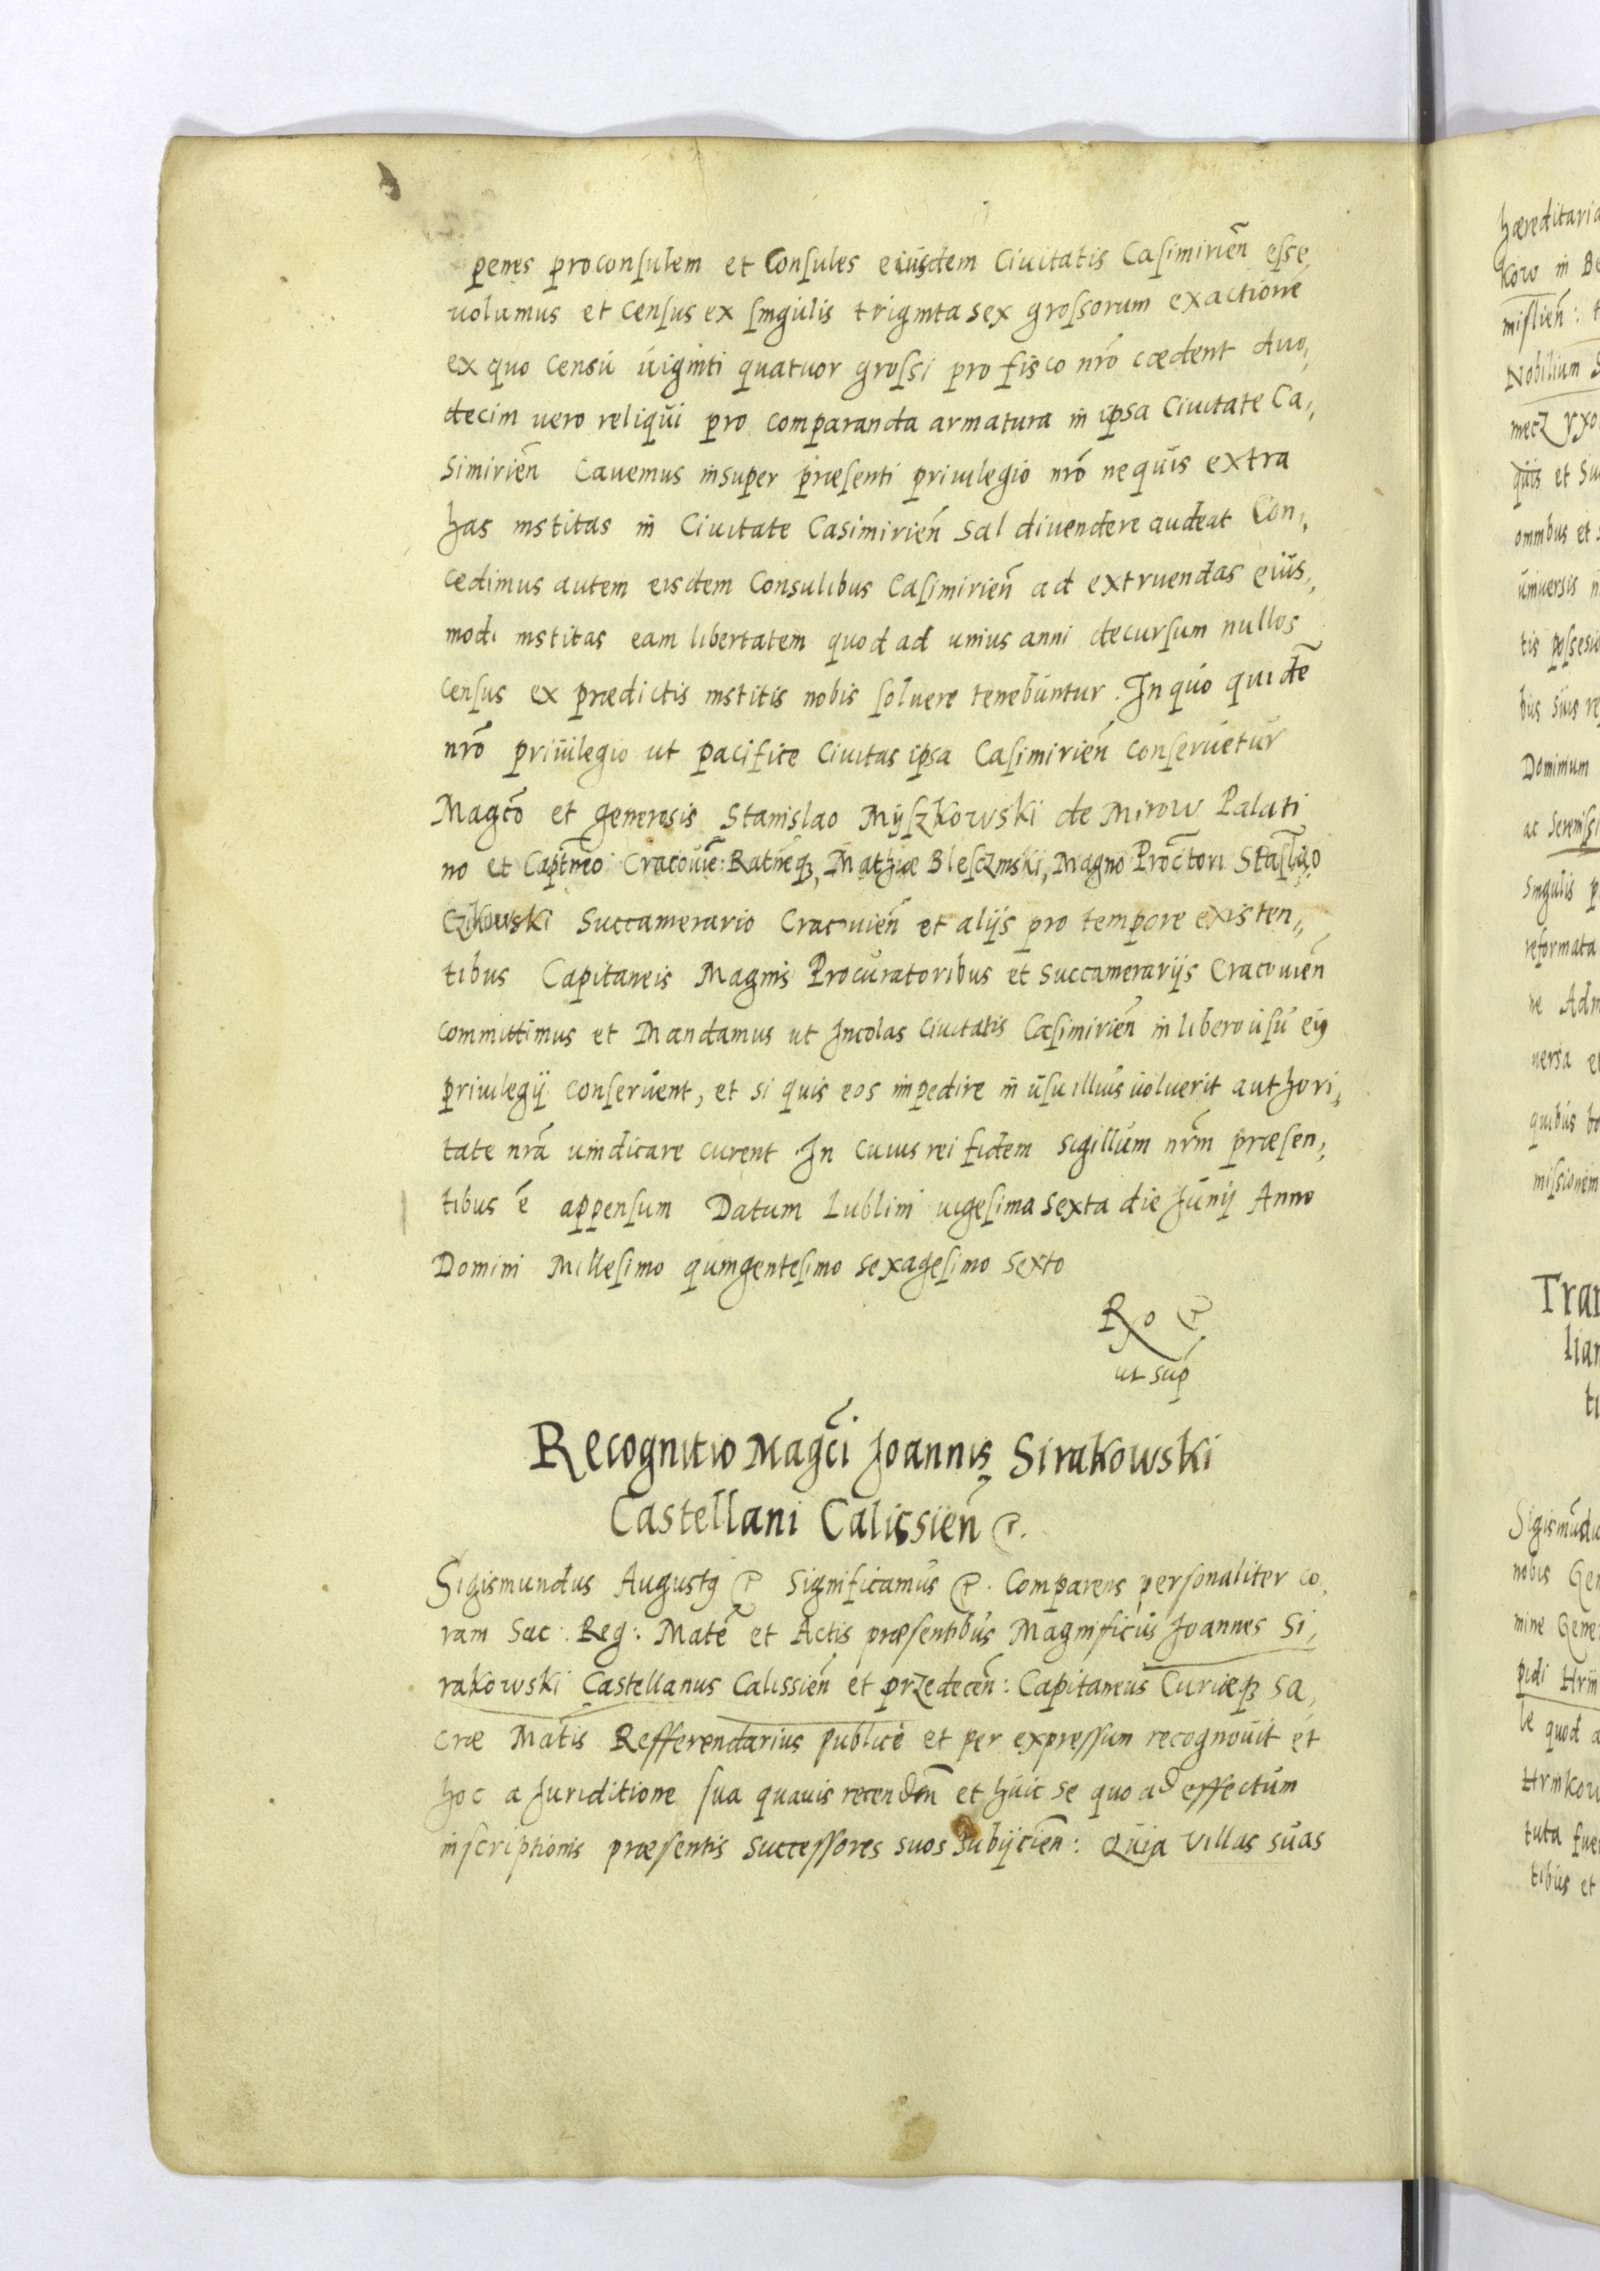 penes proconsulem et Consules eiusdem Ciuitatis Casimirieñ esse
uolumus et census ex singulis triginta sex grossorum exactione
ex quo censu uiginti quatuor grossi pro fisco nrõ cædent duo,
decim uero reliqui pro comparanda armatura in ipsa Ciuitate Ca,
simirieñ Cauemus insuper præsenti priuilegio nrõ ne quis extra
has institas in Ciuitate Casimirieñ sal diuendere audeat Con,
cedimus autem eisdem Consulibus Casimirieñ ad extruendas eius,
modi institas eam libertatem quod ad unius anni decursum nullos
census ex prædictis institis nobis soluere tenebuntur. In quo quidẽ
nrõ priuilegio ut pacifice Ciuitas ipsa Casimirieñ conseruetur
Magcõ et generosis Stanislao Myszkowski de Mirow Palati
no et Captneo Cracouiẽ: Ratneqȝ, Mathiæ Blesczinski, Magno Proctori Staslao
Czikowski Succamerario Cracouieñ et alijs pro tempore existen,
tibus Capitaneis Magnis Procuratoribus et Succamerarijs Cracouieñ
committimus et Mandamus ut Incolas Ciuitatis Casimirieñ in libero usu eiꝰ
priuilegij conseruent, et si quis eos impedire in usu illius uoluerit authori,
tate nrã uindicare curent In cuius rei fidem sigillum nrm̃ præsen,
tibus ẽ appensum Datum Lublini uigesima sexta die Junij Anno
Domini Millesimo quingentesimo sexagesimo sexto
Ro &
ut sup
Recognitio Magci Joannis Sirakowski
Castellani Calissieñ &.
Sigismundus Augustꝰ & Significamus &. Comparens personaliter co,
ram Sac: Reg: Matẽ et Actis præsentibus Magnificus Joannes Si,
rakowski Castellanus Calissieñ et przedeceñ: Capitaneus Curiæqȝ Sa,
cræ Matis Refferendarius publice et per expressum recognouit et
hoc a Juriditione sua quauis recendeñ et huic se quo ad effectum
inscriptionis præsentis successores suos subijcieñ: Quia Villas suas